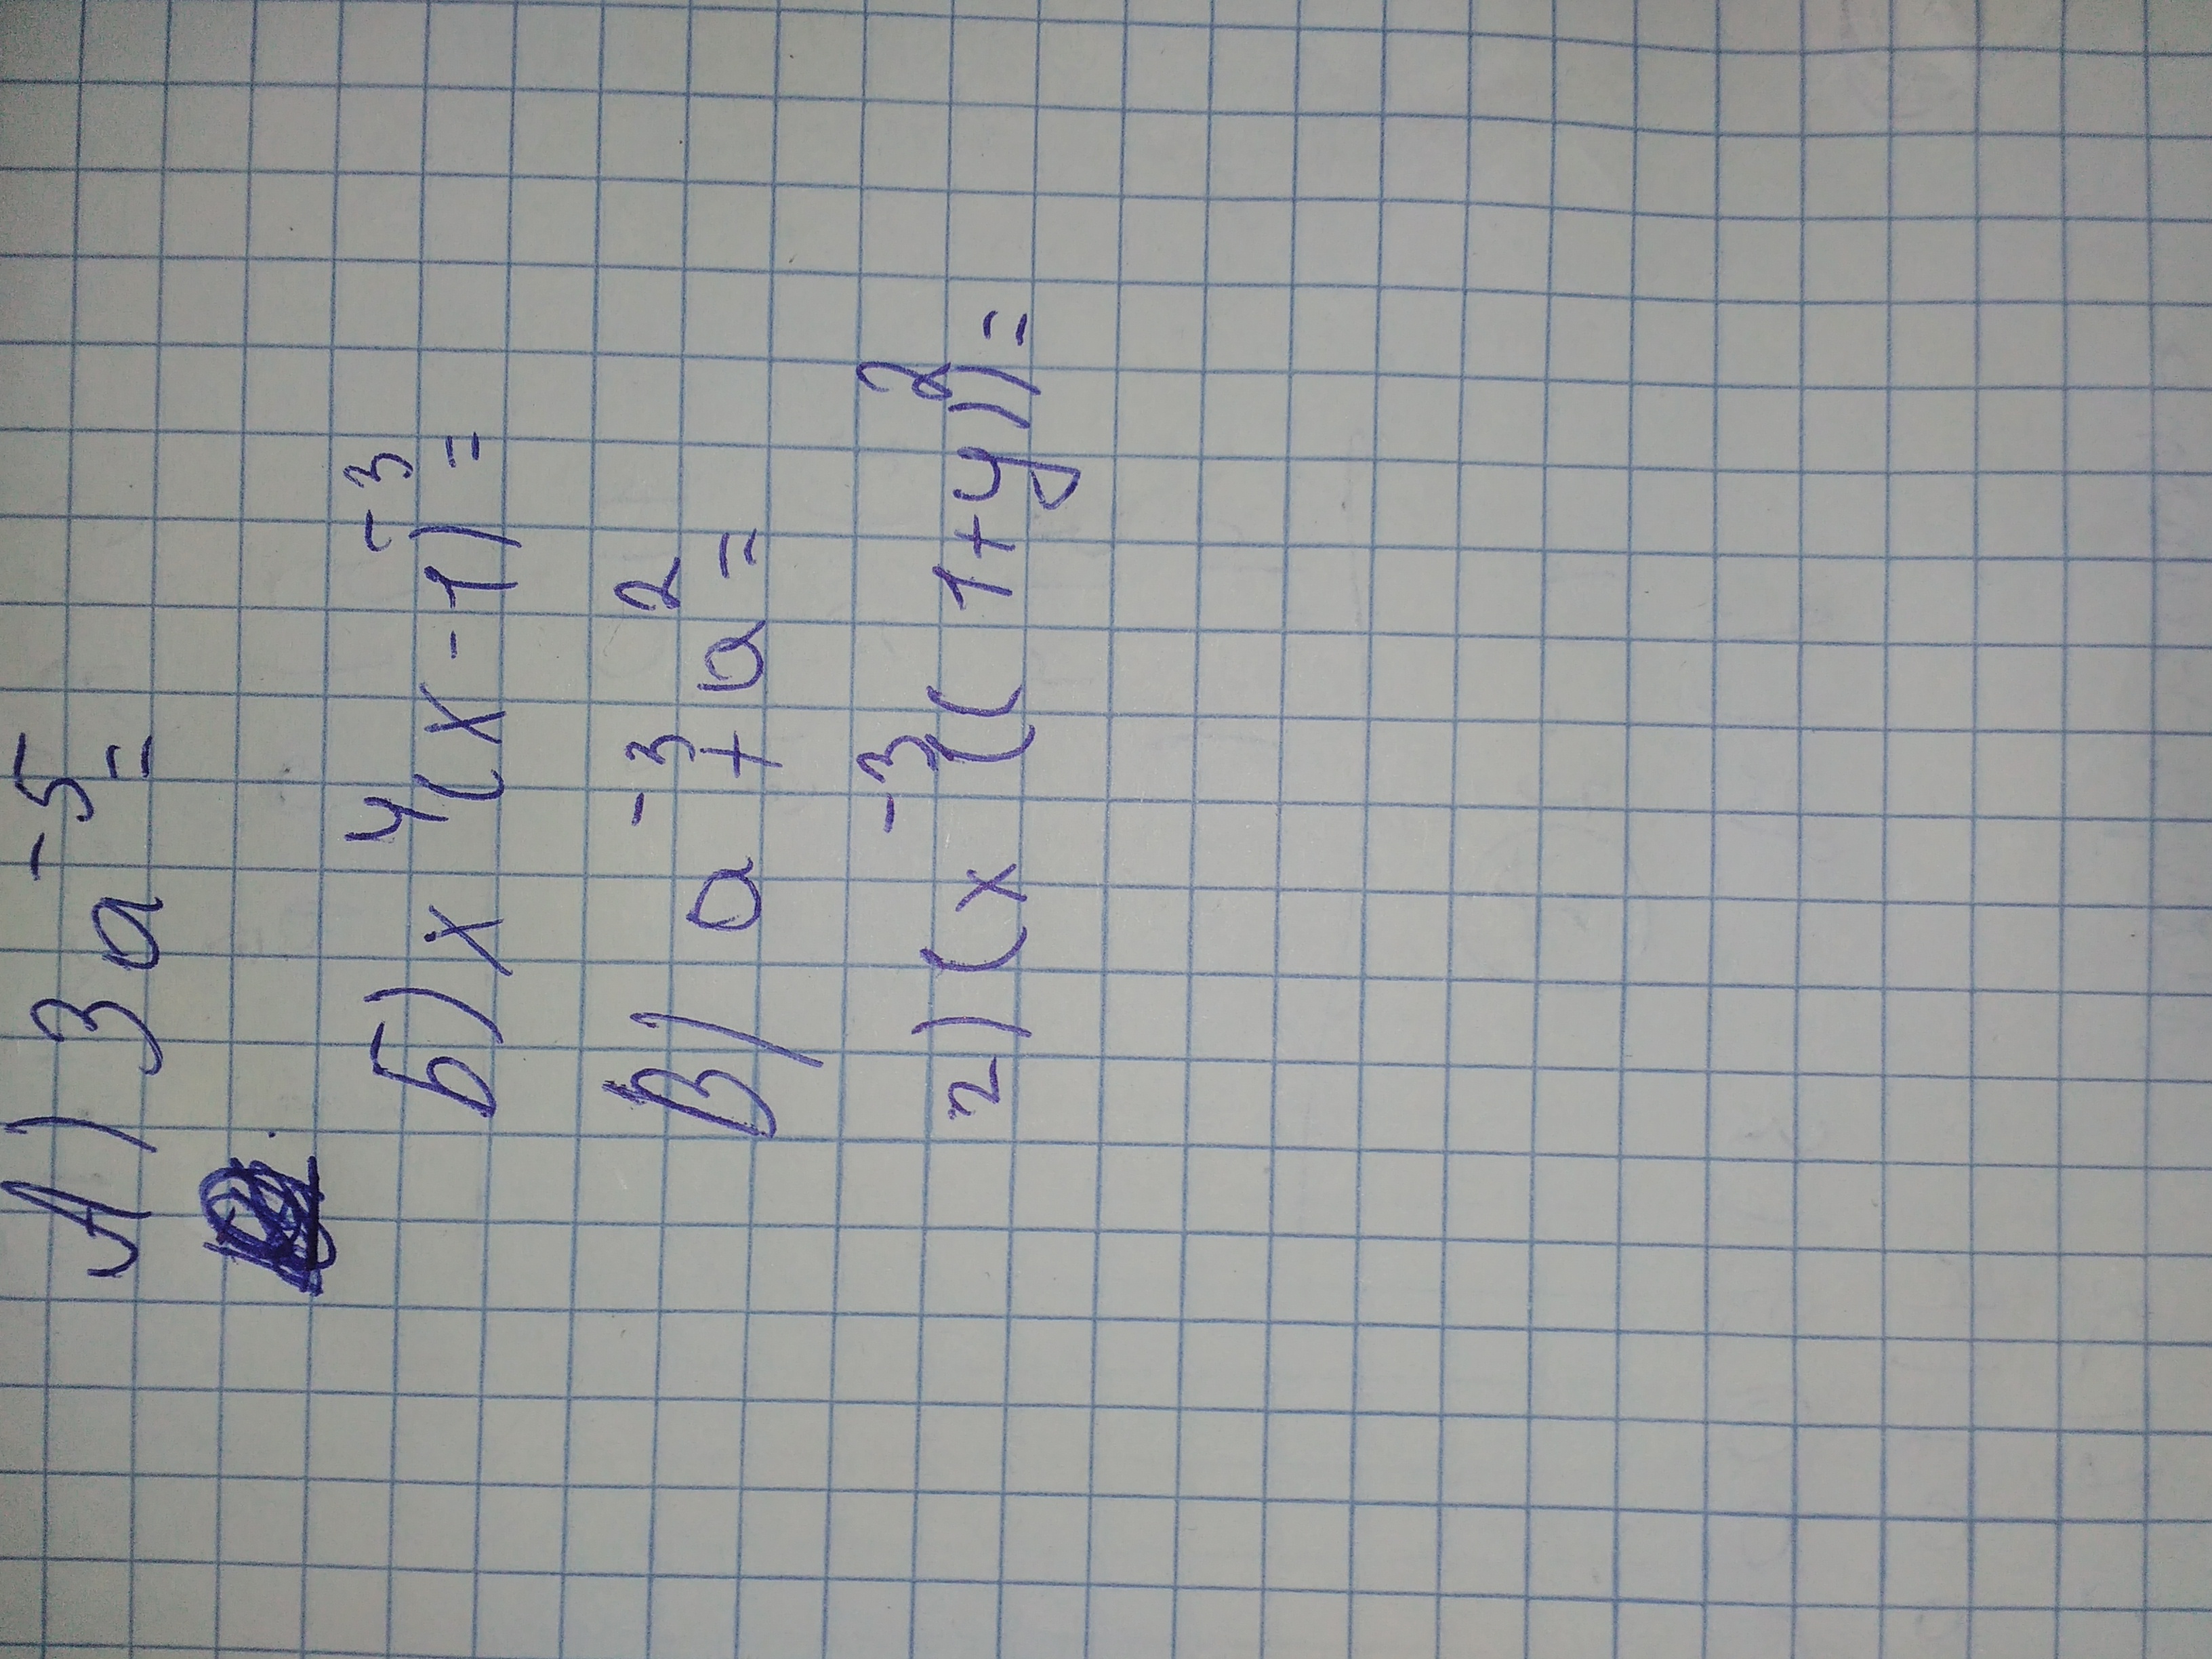 А) 3a⁻⁵=
б) x⁴(x-1)⁻³=
в) a⁻³+a²=
г) (x⁻³((1+y)²)=